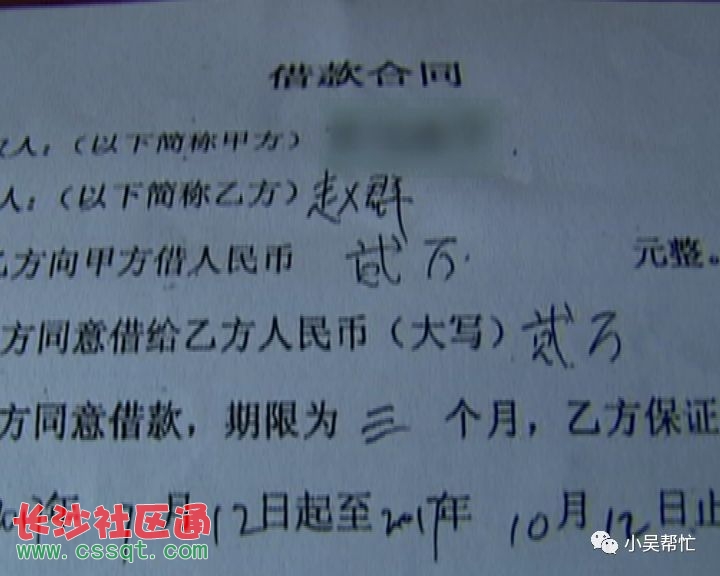 借款合同
人：（以下简称甲方）
人：（以下简称乙方）赵群
乙方向甲方借人民币 贰万 元整。
方同意借给乙方人民币（大写）贰万
方同意借款，期限为 三 个月，乙方保证
年 7月12日起至2017年 10月12日止
长沙社区通
www.cssqt.com
小吴帮忙